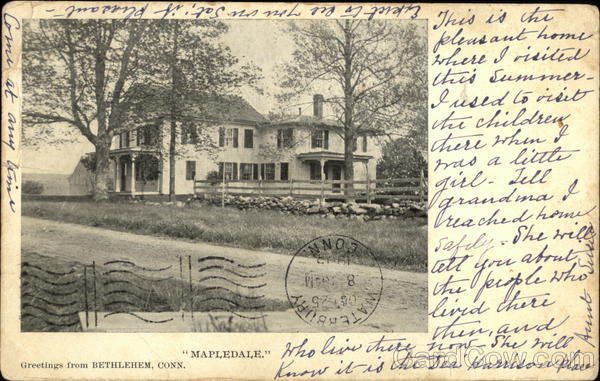 Expect to see you on Sat; if pleasant -
Come at any time
This is the
pleasant home
where I visited
this Summer-
I used to visit
the children
there when I
was a little
girl - Tell
grandma I
reached home
safely - She will
tell you about
the people who
livid there
then, and
who live there now. She will
Know it is the
Aunt
CONN.
WATERBURY
OCT 25
8
"MAPLEDALE."
Greetings from BETHLEHEM, CONN.
CardCow.com